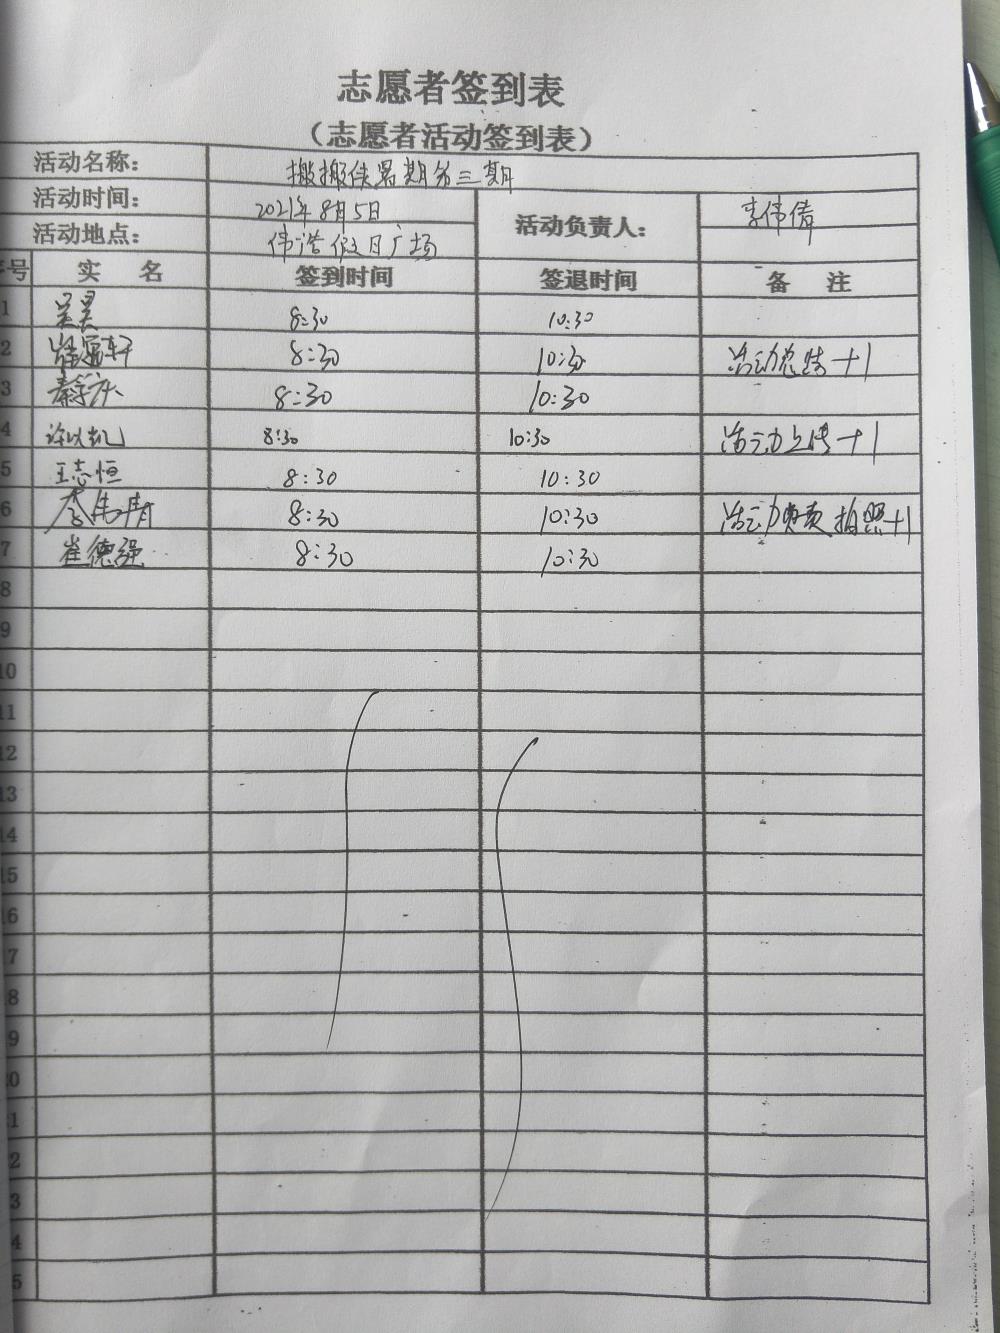 志愿者签到表
（志愿者活动签到表）
活动名称： 搬搬侠暑期第三期
活动时间： 2021年8月5日 活动负责人： 李伟倩
活动地点： 伟浩假日广场
序号 实 名 签到时间 签退时间 备 注
1 吴昊 8:30 10:30
2 8:30 10:30 活动总结+1
3 8:30 10:30
4 许以凯 8:30 10:30 活动上传+1
5 王志恒 8:30 10:30
6 李伟倩 8:30 10:30 活动负责 拍照+1
7 崔德强 8:30 10:30
8
9
10
11
12
13
14
15
16
7
8
9
20
1
2
3
4
5